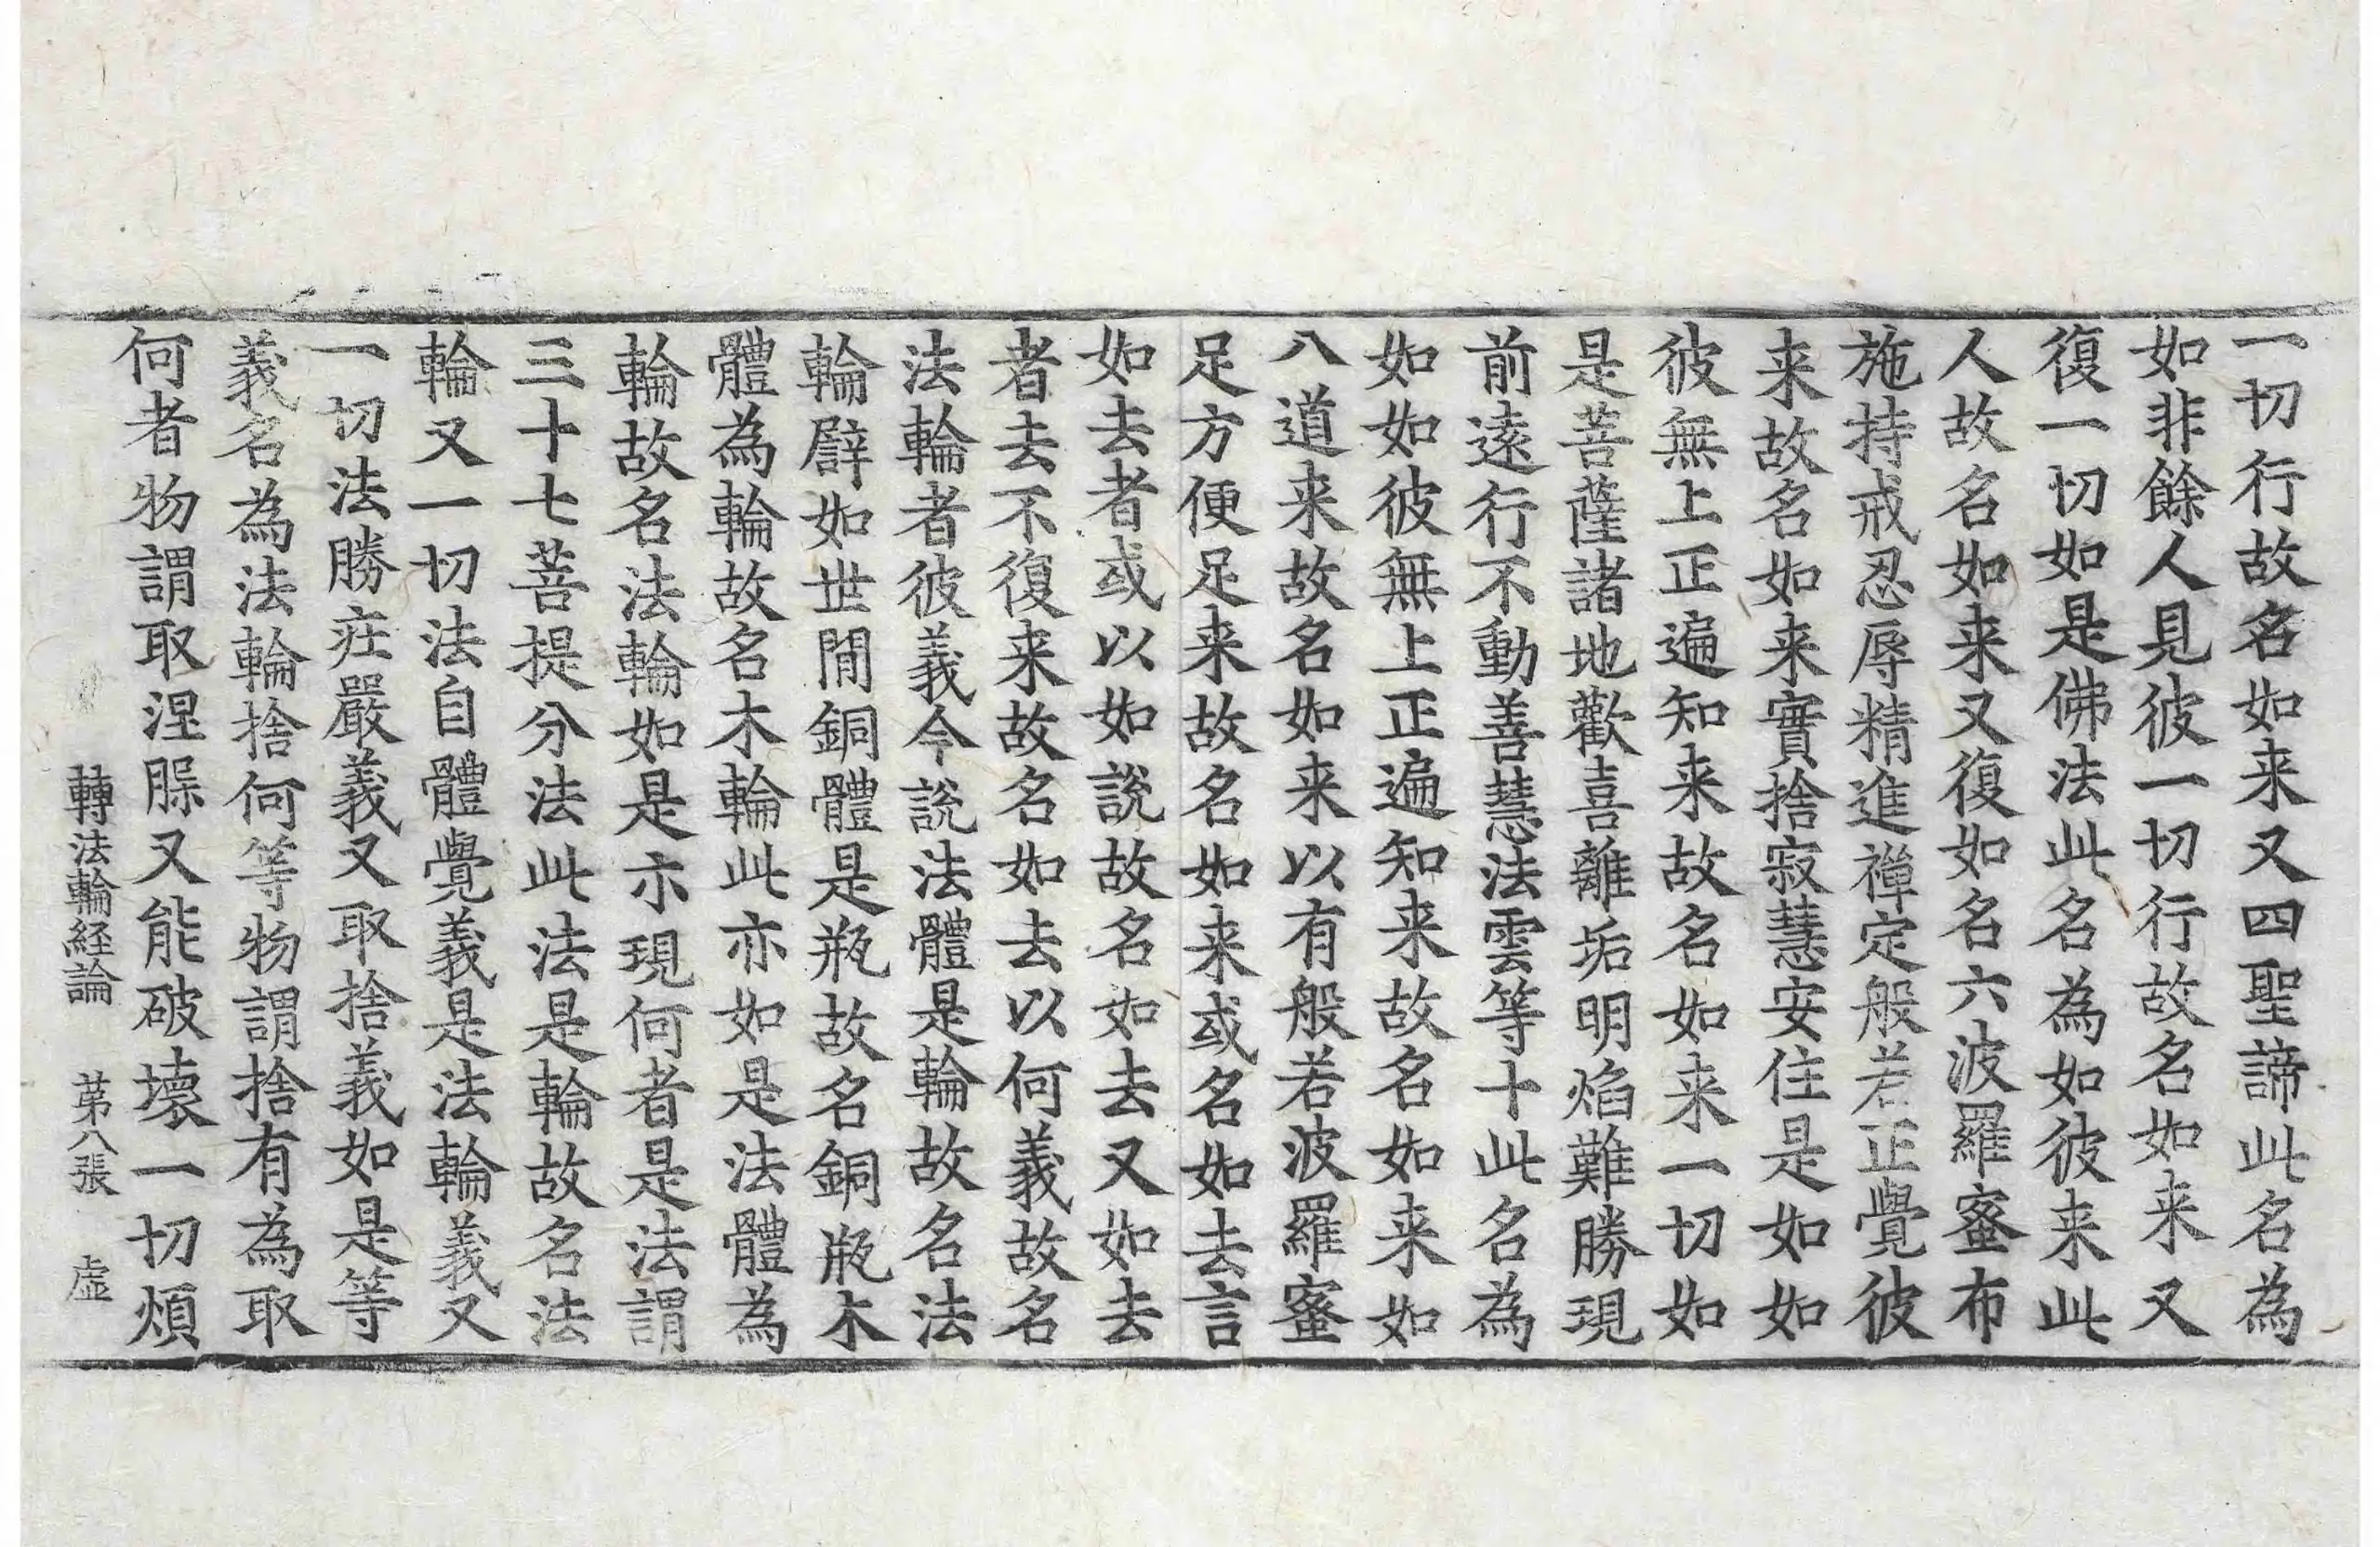 一切行故名如来又四聖諦此名為
如非餘人見彼一切行故名如来又
復一切如是佛法此名為如彼来此
人故名如来又復如名六波羅蜜布
施持戒忍辱精進禪定般若正覺彼
来故名如来實捨寂慧安住是如如
彼無上正遍知来故名如来一切如
是菩薩諸地歡喜離垢明焰難勝現
前遠行不動善慧法雲等十此名為
如如彼無上正遍知来故名如来如
八道来故名如来以有般若波羅蜜
足方便足来故名如来或名如去言
如去者或以如說故名如去又如去
者去不復来故名如去以何義故名
法輪者彼義今說法體是輪故名法
輪辟如世間銅體是瓶故名銅瓶木
體為輪故名木輪此亦如是法體為
輪故名法輪如是亦現何者是法謂
三十七菩提分法此法是輪故名法
輪又一切法自體覺義是法輪義又
一切法勝庄嚴義又取捨義如是等
義名為法輪捨何等物謂捨有為取
何者物謂取涅脲又能破壞一切煩
轉法輪経論 苐八張 虛